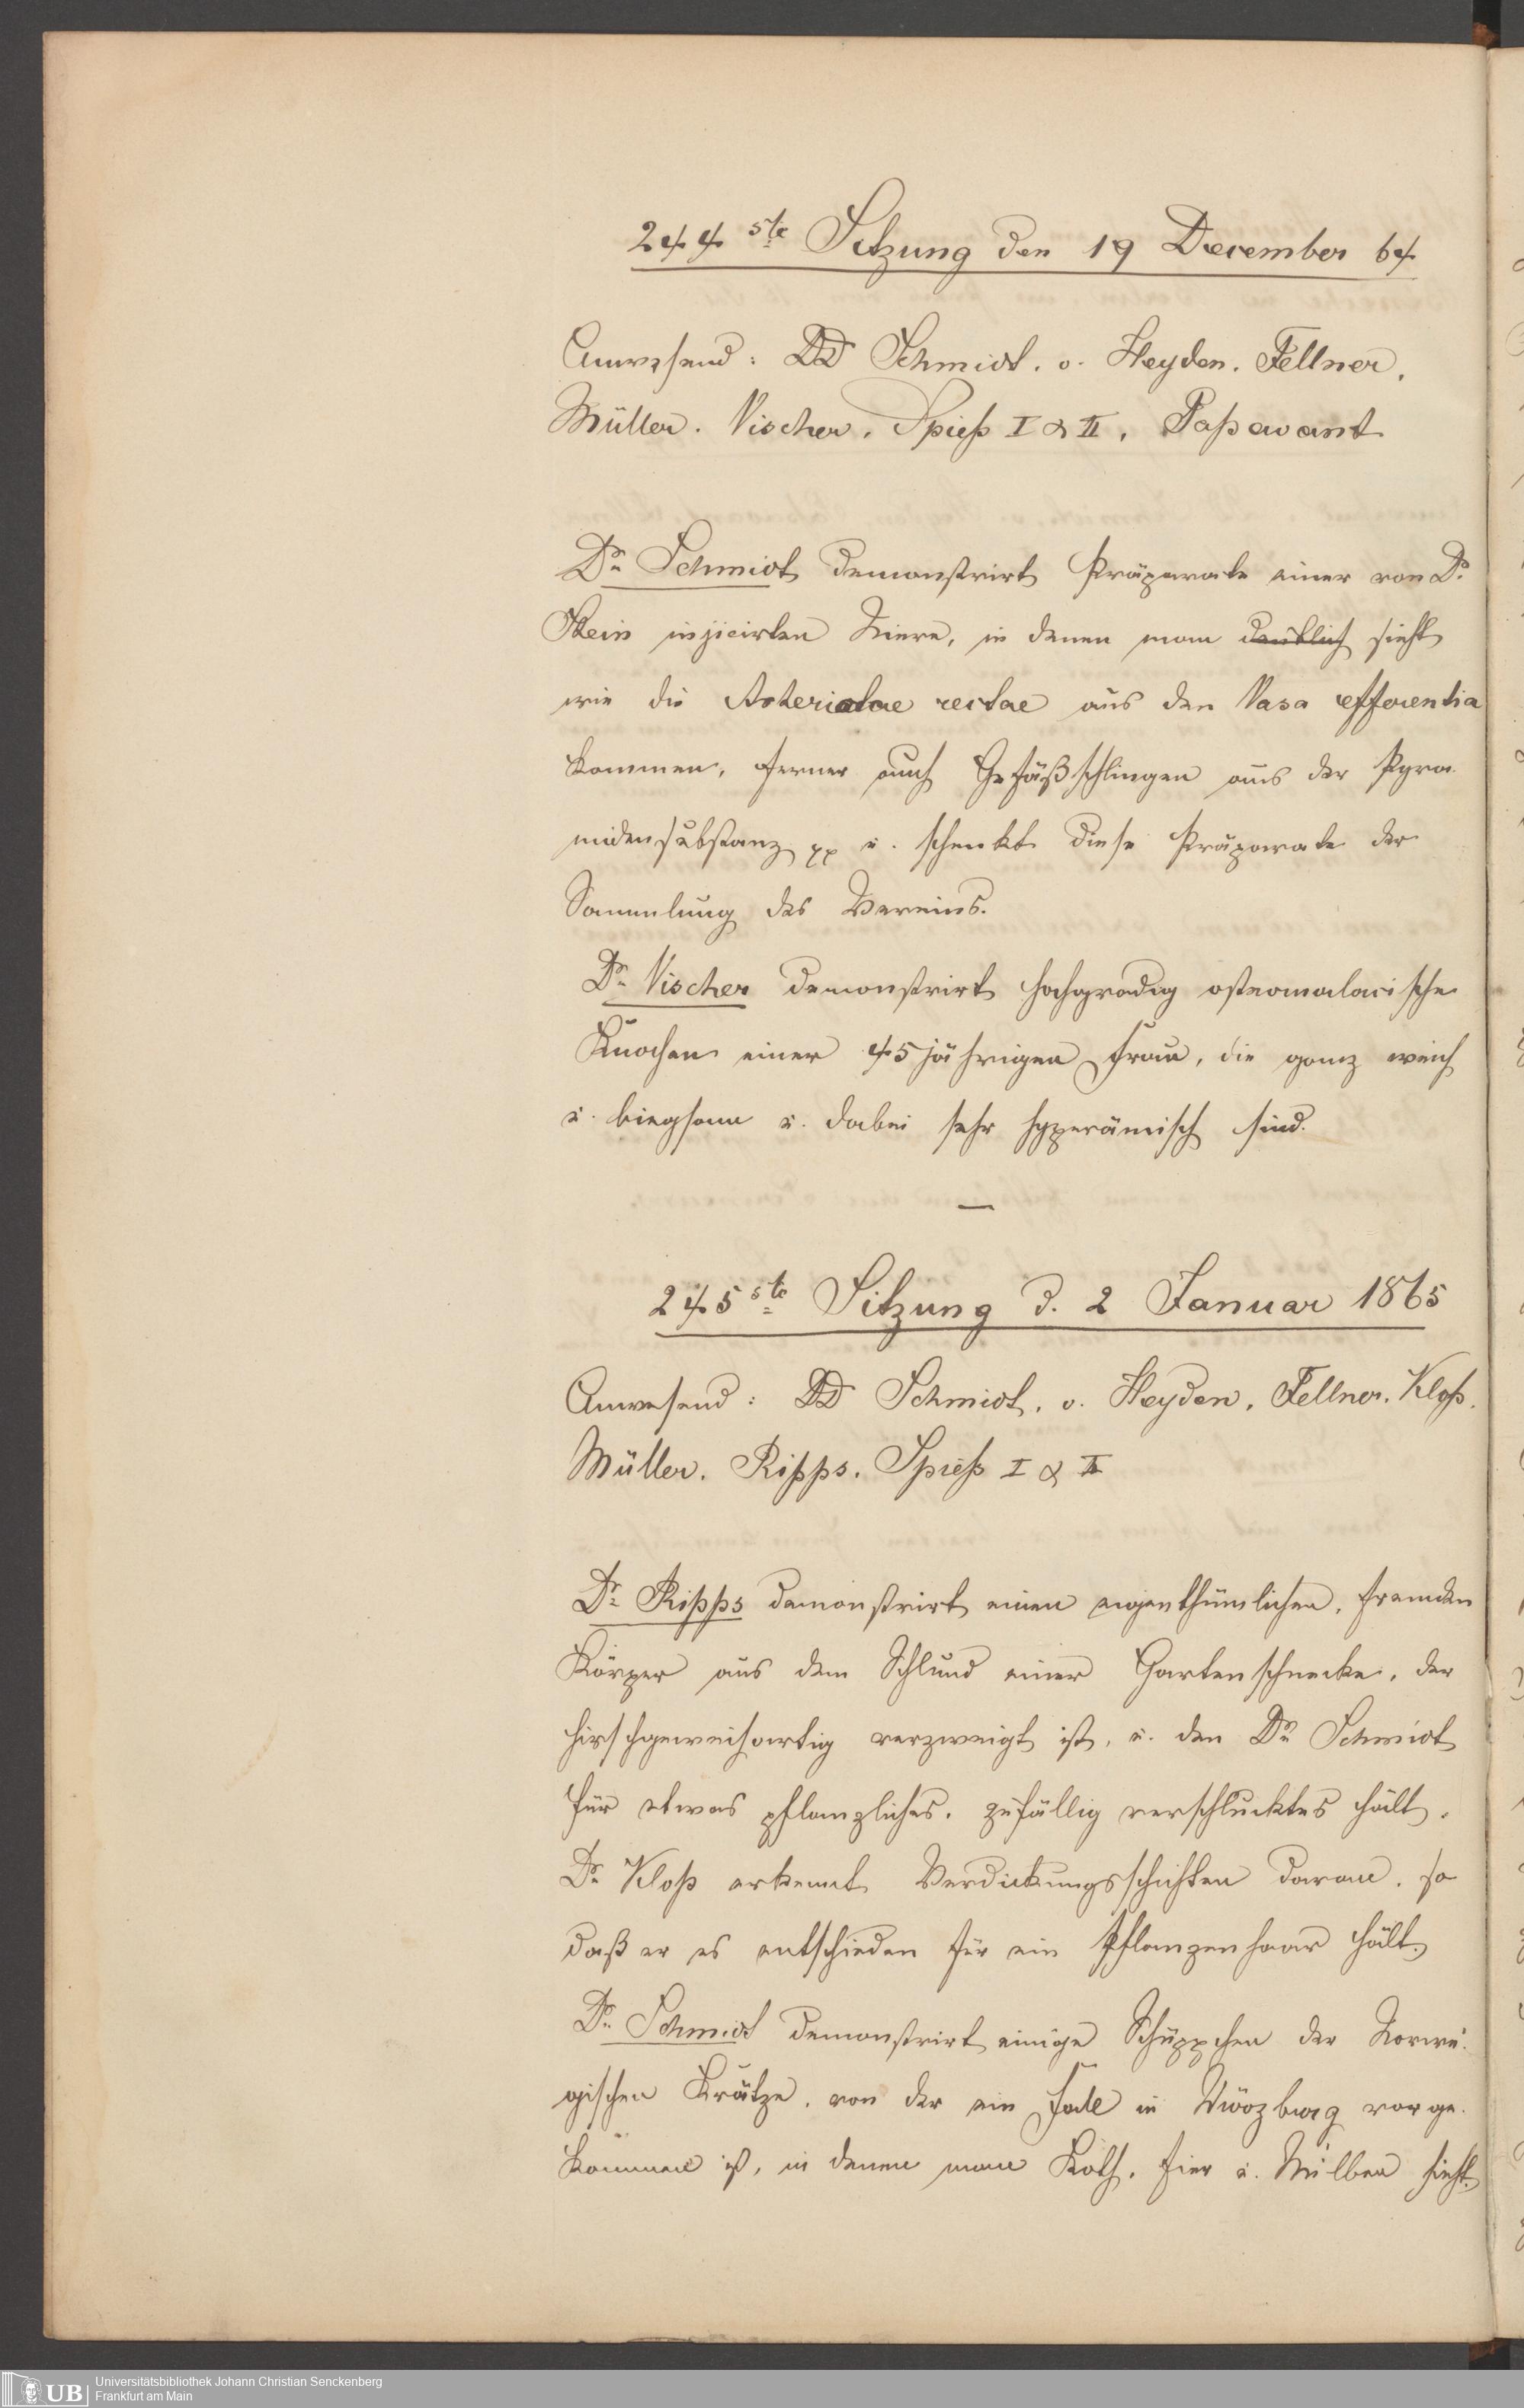 244ste Sitzung den 19 December 64
Anwesend: DD Schmidt. v. Heyden. Fellner.
Müller. Vischer. Spieß I & II. Paßavant
Dr. Schmidt demonstrirt Präparate einer von Dr.
Stein injicirten Niere, in denen man deutlich sieht
wie die Arteriolae rectae aus den Vasa efferentia
kommen, ferner auch Gefäßschlingen aus der Pyra
midensubstanz pp u. schenkt diese Präparate der
Sammlung des Vereins.
Dr. Vischer demonstrirt hochgradig osteomalacische
Knochen einer 45jährigen Frau, die ganz weich
u. biegsam u. dabei sehr hyperämisch sind.
—
245ste Sitzung d. 2 Januar 1865
Anwesend: DD Schmidt. v. Heyden. Fellner. Kloß.
Müller. Ripps. Spieß I & II
Dr. Ripps demonstrirt einen eigenthümlichen, fremden
Körper aus dem Schlund einer Gartenschnecke, der
hirschgeweihartig verzweigt ist, u. den Dr. Schmidt
für etwas pflanzliches, zufällig verschlucktes hält.
Dr. Kloß erkennt Verdickungsschichten daran, so
daß er es entschieden für ein Pflanzenhaar hält.
Dr. Schmidt demonstrirt einige Schüppchen der Norwe-
gischen Krätze, von der ein Fall in Würzburg vorge-
kommen ist, in denen man Koth, Eier u. Milben sieht.
Universitätsbibliothek Johann Christian Senckenberg
Frankfurt am Main
UB